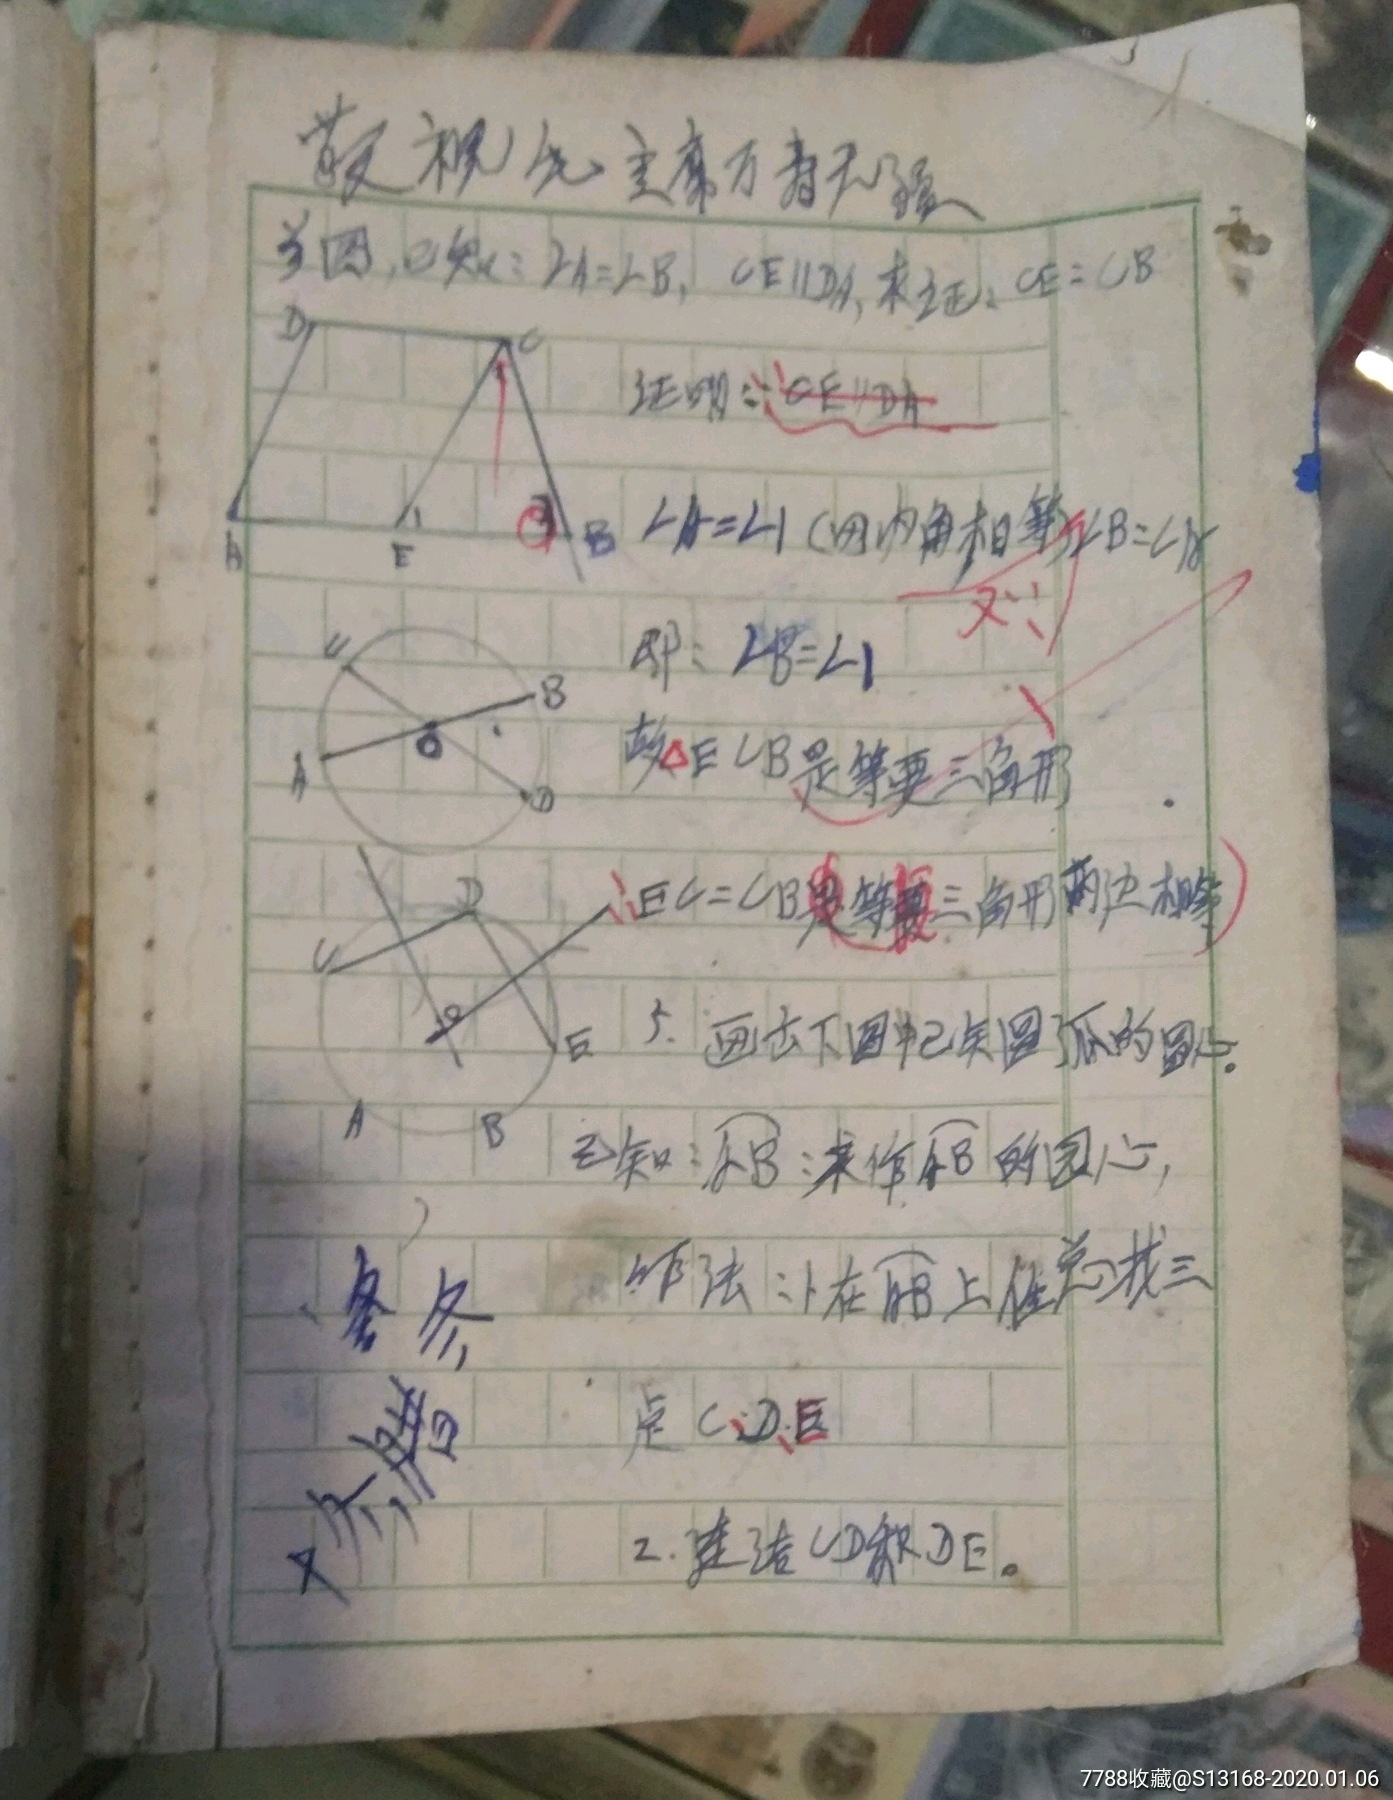 敬祝毛主席万寿无疆
当图,已知:∠A=∠B, CE∥DA,求证:CE=CB
D
C
A
E
1
B
证明:∵CE∥DA
∠A=∠1(因内角相等)∠B=∠A
又∵
即:∠B=∠1
故△ECB是等要三角形
∴EC=CB是等要三角形两边相等)
C
B
O
A
D
D
C
O
E
A
B
5.画去下图中已矢圆弧的圆心。
已知:AB:求作AB的园心,
作法:1在AB上任意找三
点C、D、E
2.连结CD和DE。
冬
7788收藏@S13168-2020.01.06